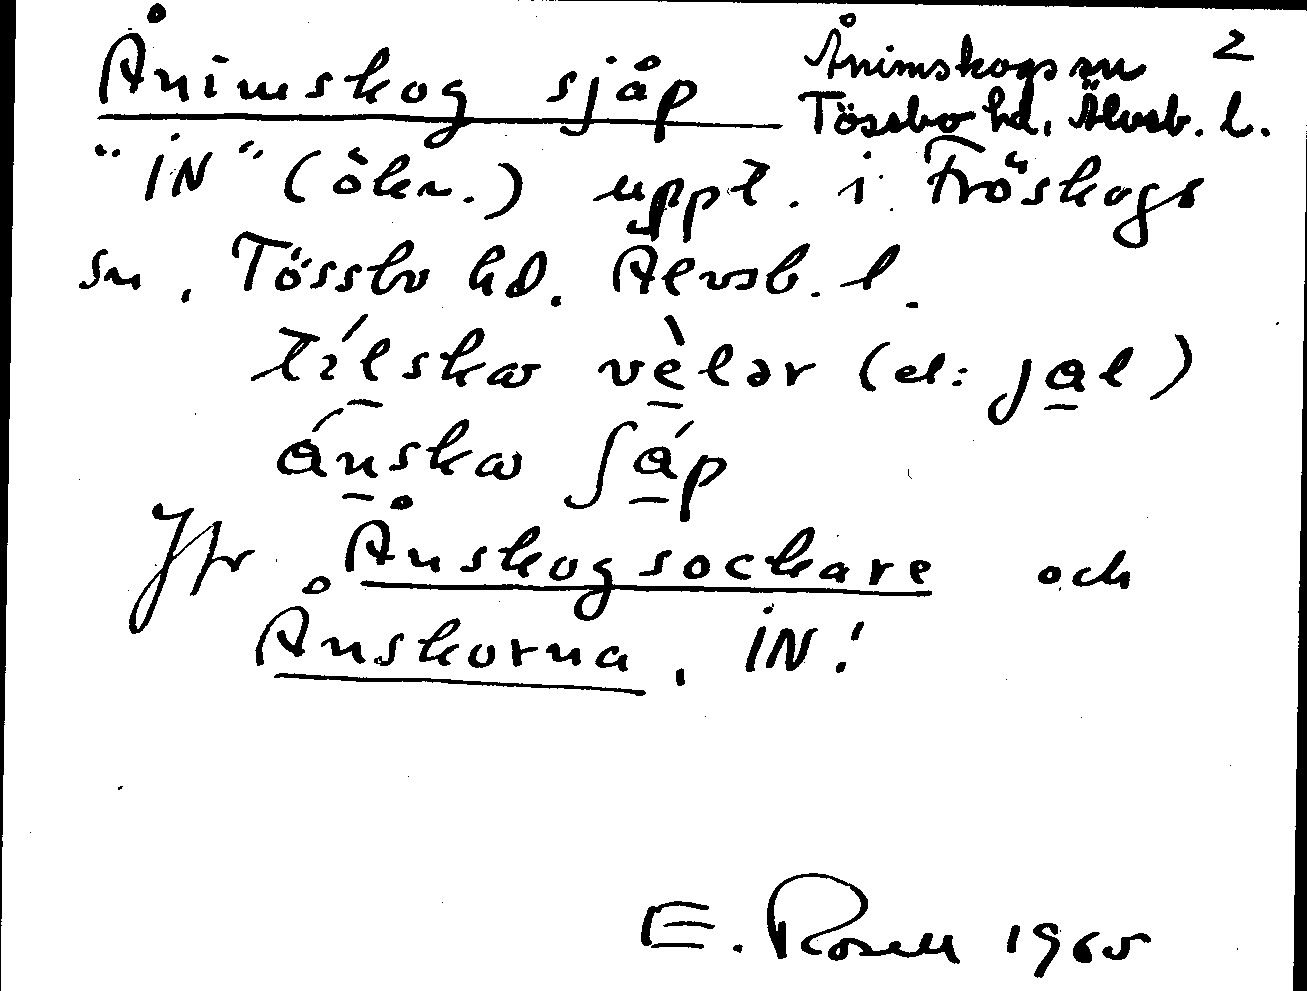 Ånimskog sjåp
Ånimskogs sn 2
Tössbo hd, Älvsb. l.
"iN" (ökn.) uppt. i Fröskogs
sn, Tössbo hd. Älvsb. l.
tílska vèlər (el: jal)
ánska ʃáp
Jfr Ånskogsockare och
Ånskorna, iN!
E. Rosell 1965